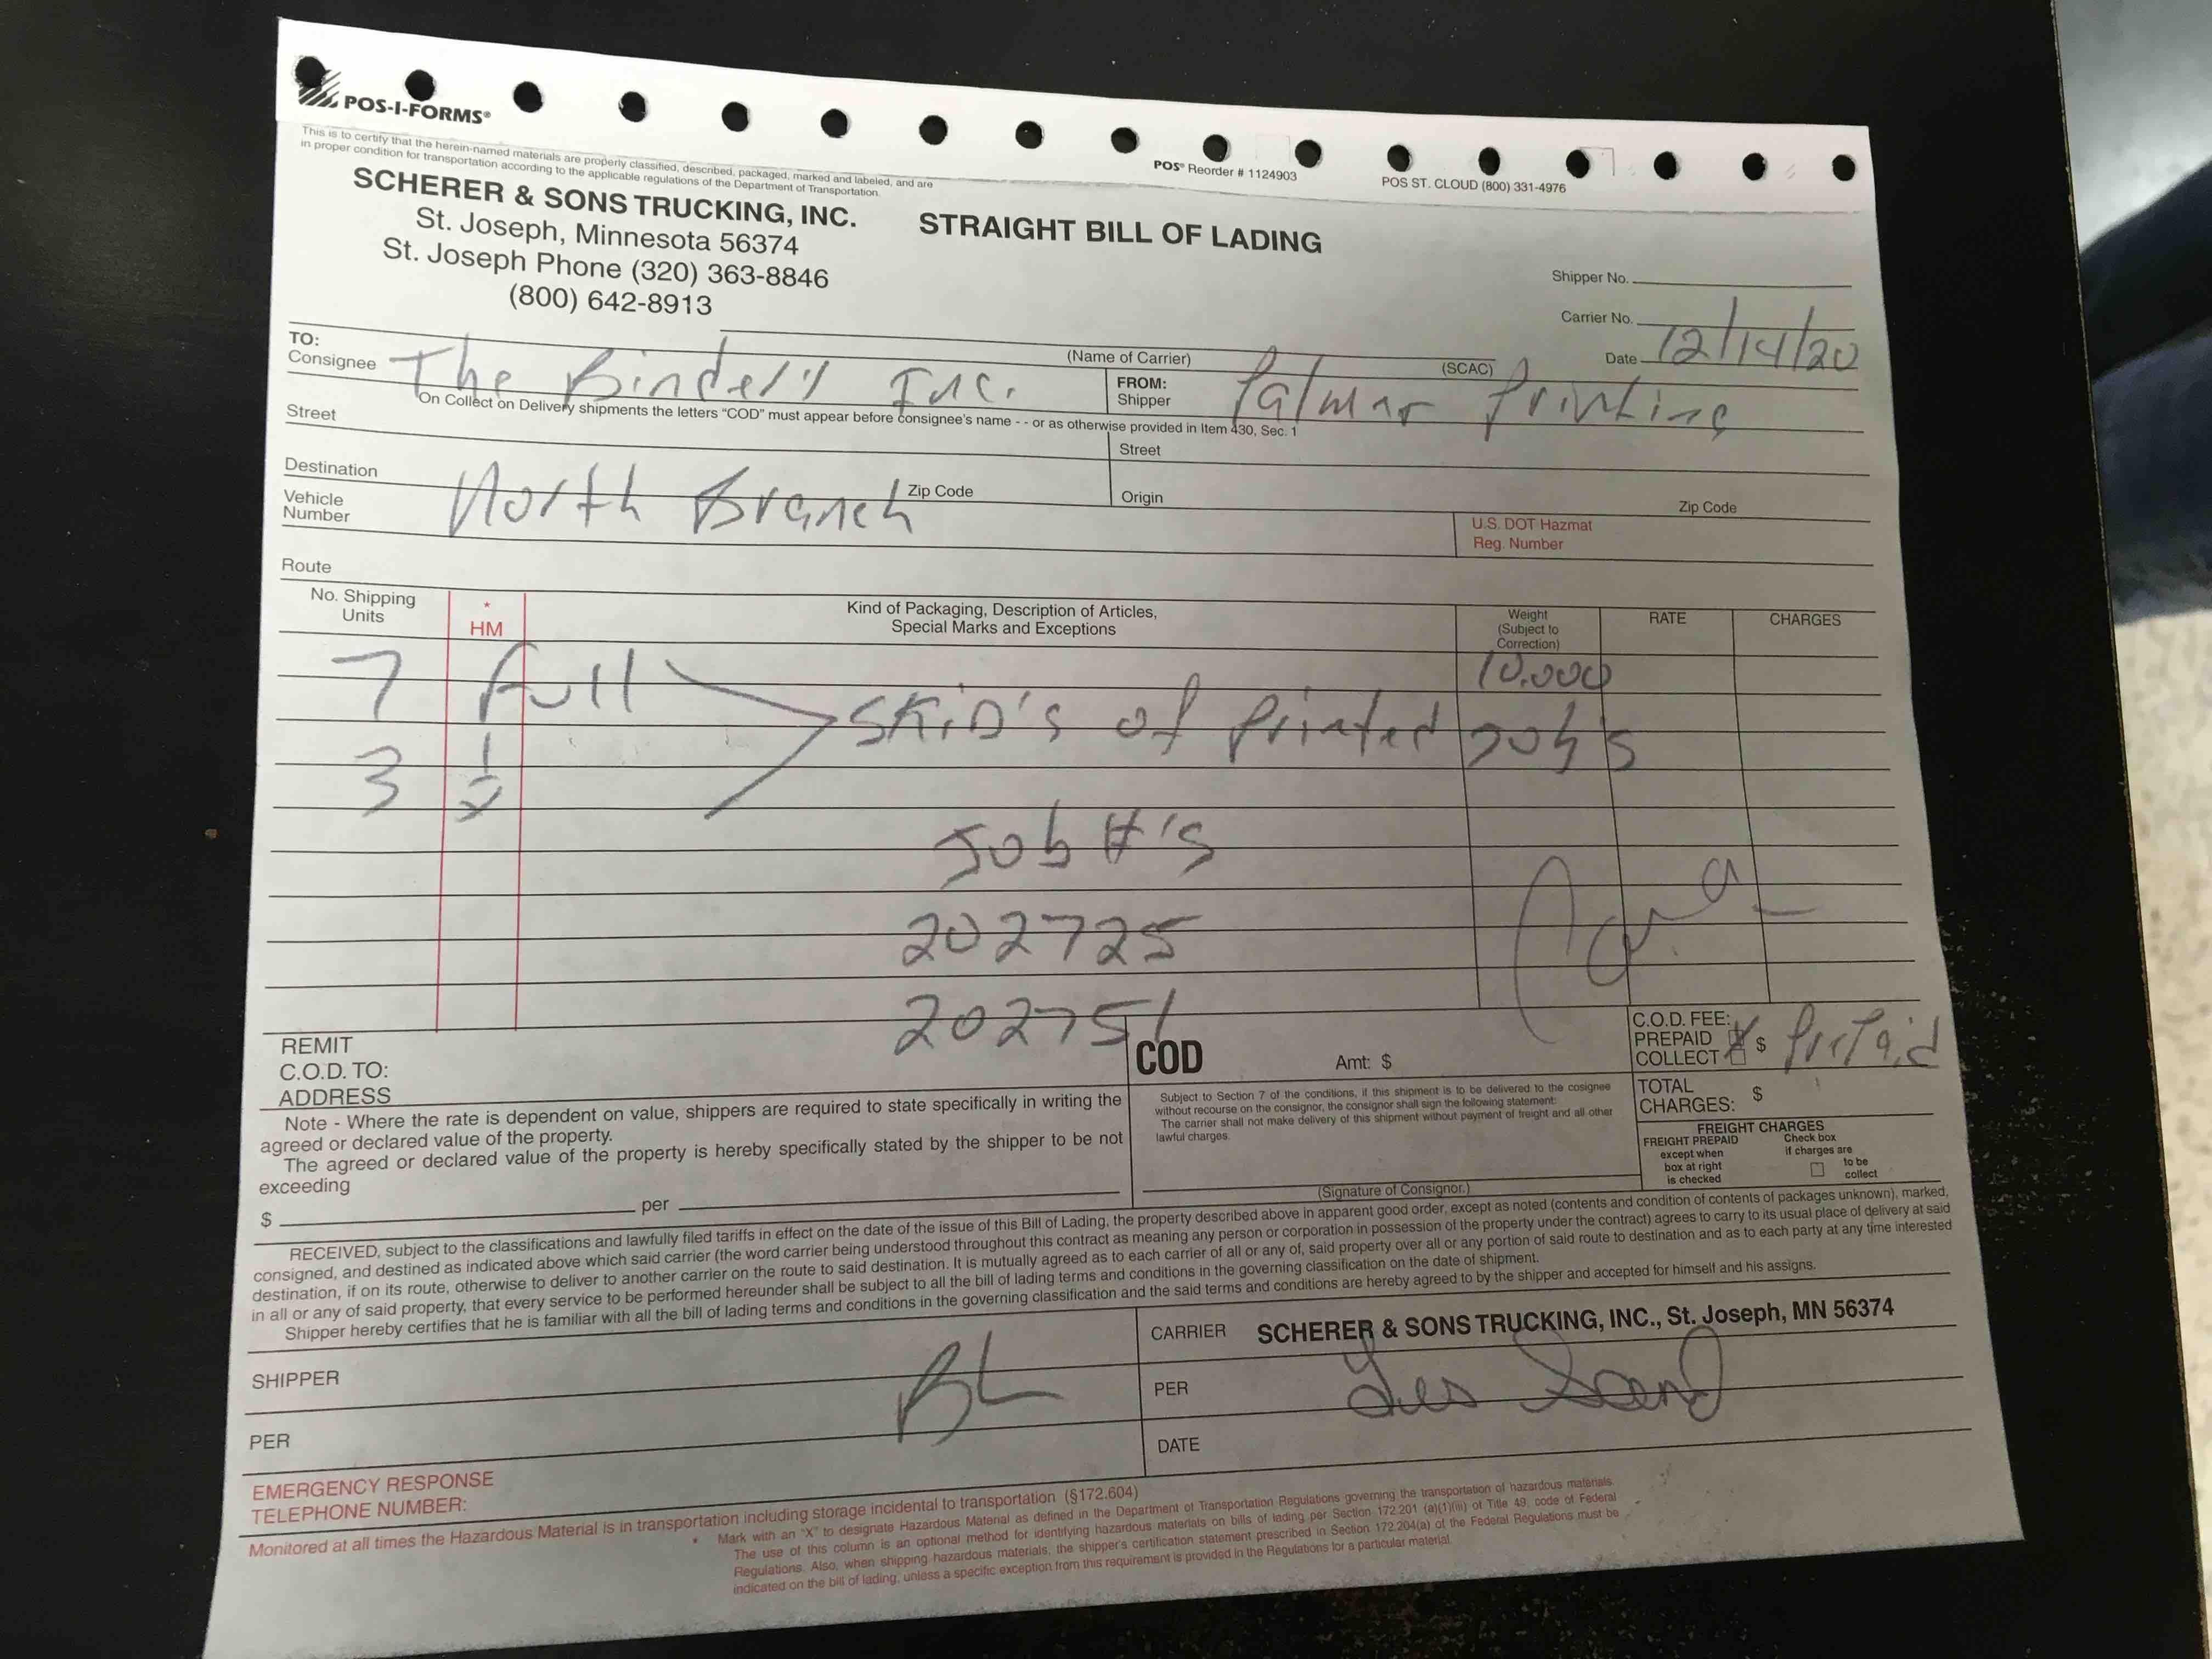 POS-I-FORMS®
This is to certify that the herein-named materials are properly classified, described, packaged, marked and labeled, and are
in proper condition for transportation according to the applicable regulations of the Department of Transportation.
POS® Reorder # 1124903
POS ST. CLOUD (800) 331-4976
SCHERER & SONS TRUCKING, INC.
St. Joseph, Minnesota 56374
St. Joseph Phone (320) 363-8846
(800) 642-8913
STRAIGHT BILL OF LADING
Shipper No.
Carrier No.
Date 12/14/20
(Name of Carrier) (SCAC)
TO:
Consignee The Bindery Inc.
FROM:
Shipper Palmer Printing
On Collect on Delivery shipments the letters “COD” must appear before consignee's name - - or as otherwise provided in Item 430, Sec. 1
Street
Street
Destination North Branch Zip Code
Origin Zip Code
Vehicle
Number
U.S. DOT Hazmat
Reg. Number
Route
No. Shipping
Units
*
HM
Kind of Packaging, Description of Articles,
Special Marks and Exceptions
Weight
(Subject to
Correction)
RATE
CHARGES
7 full 10,000
SKiD's of Printed Job's
3 1/2
Job #'s
202725
202751
REMIT
C.O.D. TO:
ADDRESS
COD Amt: $
C.O.D. FEE:
PREPAID
COLLECT $ PrePaid
Note - Where the rate is dependent on value, shippers are required to state specifically in writing the
agreed or declared value of the property.
The agreed or declared value of the property is hereby specifically stated by the shipper to be not
exceeding
$ per
Subject to Section 7 of the conditions, if this shipment is to be delivered to the cosignee
without recourse on the consignor, the consignor shall sign the following statement:
The carrier shall not make delivery of this shipment without payment of freight and all other
lawful charges.
(Signature of Consignor.)
TOTAL
CHARGES: $
FREIGHT CHARGES
FREIGHT PREPAID
except when
box at right
is checked
Check box
if charges are
to be
collect
RECEIVED, subject to the classifications and lawfully filed tariffs in effect on the date of the issue of this Bill of Lading, the property described above in apparent good order, except as noted (contents and condition of contents of packages unknown), marked,
consigned, and destined as indicated above which said carrier (the word carrier being understood throughout this contract as meaning any person or corporation in possession of the property under the contract) agrees to carry to its usual place of delivery at said
destination, if on its route, otherwise to deliver to another carrier on the route to said destination. It is mutually agreed as to each carrier of all or any of, said property over all or any portion of said route to destination and as to each party at any time interested
in all or any of said property, that every service to be performed hereunder shall be subject to all the bill of lading terms and conditions in the governing classification on the date of shipment.
Shipper hereby certifies that he is familiar with all the bill of lading terms and conditions in the governing classification and the said terms and conditions are hereby agreed to by the shipper and accepted for himself and his assigns.
SHIPPER
PER
BL
CARRIER SCHERER & SONS TRUCKING, INC., St. Joseph, MN 56374
PER Les
DATE
EMERGENCY RESPONSE
TELEPHONE NUMBER:
Monitored at all times the Hazardous Material is in transportation including storage incidental to transportation (§172.604)
* Mark with an “X” to designate Hazardous Material as defined in the Department of Transportation Regulations governing the transportation of hazardous materials.
The use of this column is an optional method for identifying hazardous materials on bills of lading per Section 172.201 (a)(1)(iii) of Title 49, code of Federal
Regulations. Also, when shipping hazardous materials, the shipper's certification statement prescribed in Section 172.204(a) of the Federal Regulations must be
indicated on the bill of lading, unless a specific exception from this requirement is provided in the Regulations for a particular material.